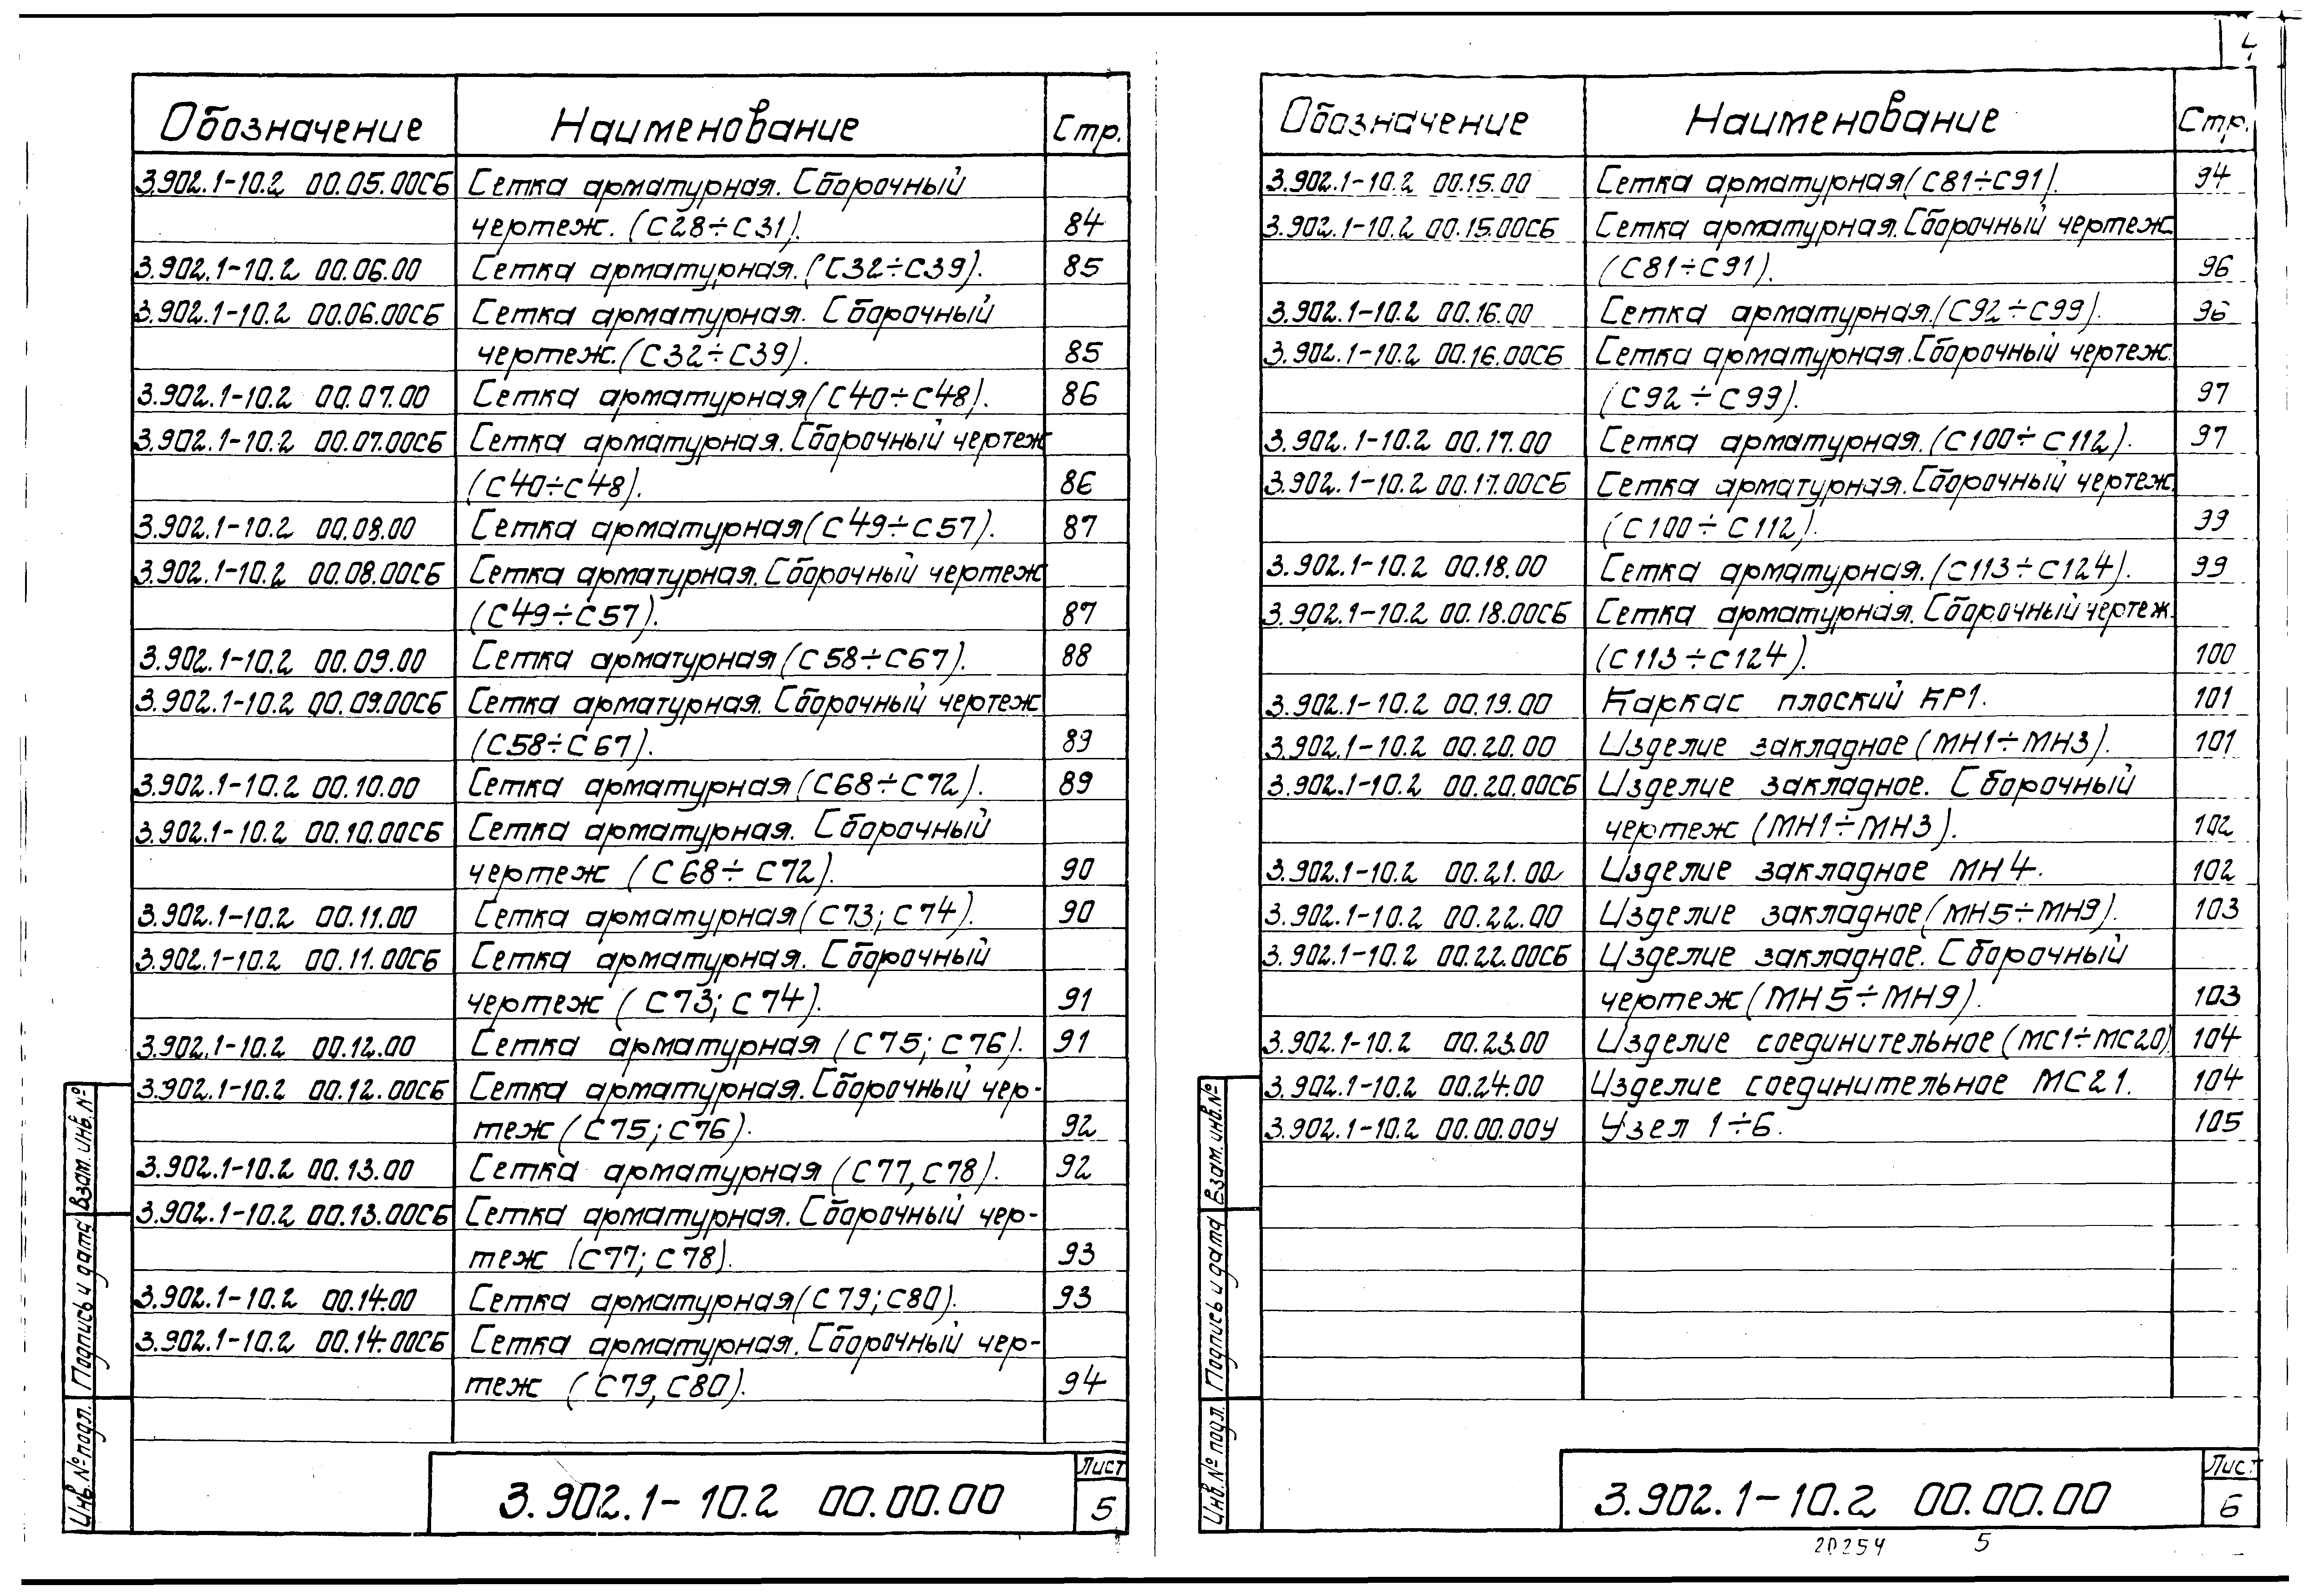 Обозначение Наименование Стр.
3.902.1-10.2 00.05.00СБ Сетка арматурная. Сборочный
чертеж. (С28÷С31). 84
3.902.1-10.2 00.06.00 Сетка арматурная. (С32÷С39). 85
3.902.1-10.2 00.06.00СБ Сетка арматурная. Сборочный
чертеж. (С32÷С39). 85
3.902.1-10.2 00.07.00 Сетка арматурная (С40÷С48). 86
3.902.1-10.2 00.07.00СБ Сетка арматурная. Сборочный чертеж
(С40÷С48). 86
3.902.1-10.2 00.08.00 Сетка арматурная (С49÷С57). 87
3.902.1-10.2 00.08.00СБ Сетка арматурная. Сборочный чертеж
(С49÷С57). 87
3.902.1-10.2 00.09.00 Сетка арматурная (С58÷С67). 88
3.902.1-10.2 00.09.00СБ Сетка арматурная. Сборочный чертеж
(С58÷С67). 89
3.902.1-10.2 00.10.00 Сетка арматурная (С68÷С72). 89
3.902.1-10.2 00.10.00СБ Сетка арматурная. Сборочный
чертеж (С68÷С72). 90
3.902.1-10.2 00.11.00 Сетка арматурная (С73; С74). 90
3.902.1-10.2 00.11.00СБ Сетка арматурная. Сборочный
чертеж (С73; С74). 91
3.902.1-10.2 00.12.00 Сетка арматурная (С75; С76). 91
3.902.1-10.2 00.12.00СБ Сетка арматурная. Сборочный чер-
теж (С75; С76). 92
3.902.1-10.2 00.13.00 Сетка арматурная (С77, С78). 92
3.902.1-10.2 00.13.00СБ Сетка арматурная. Сборочный чер-
теж (С77; С78). 93
3.902.1-10.2 00.14.00 Сетка арматурная (С79; С80). 93
3.902.1-10.2 00.14.00СБ Сетка арматурная. Сборочный чер-
теж (С79, С80). 94
Взам. инв. №
Подпись и дата
Инв. № подл.
3.902.1-10.2 00.00.00
Лист
5
4
Обозначение Наименование Стр.
3.902.1-10.2 00.15.00 Сетка арматурная (С81÷С91). 94
3.902.1-10.2 00.15.00СБ Сетка арматурная. Сборочный чертеж
(С81÷С91). 96
3.902.1-10.2 00.16.00 Сетка арматурная. (С92÷С99). 96
3.902.1-10.2 00.16.00СБ Сетка арматурная. Сборочный чертеж.
(С92÷С99). 97
3.902.1-10.2 00.17.00 Сетка арматурная. (С100÷С112). 97
3.902.1-10.2 00.17.00СБ Сетка арматурная. Сборочный чертеж.
(С100÷С112). 99
3.902.1-10.2 00.18.00 Сетка арматурная. (С113÷С124). 99
3.902.1-10.2 00.18.00СБ Сетка арматурная. Сборочный чертеж.
(С113÷С124). 100
3.902.1-10.2 00.19.00 Каркас плоский КР1. 101
3.902.1-10.2 00.20.00 Изделие закладное (МН1÷МН3). 101
3.902.1-10.2 00.20.00СБ Изделие закладное. Сборочный
чертеж (МН1÷МН3). 102
3.902.1-10.2 00.21.00 Изделие закладное МН4. 102
3.902.1-10.2 00.22.00 Изделие закладное (МН5÷МН9). 103
3.902.1-10.2 00.22.00СБ Изделие закладное. Сборочный
чертеж (МН5÷МН9). 103
3.902.1-10.2 00.23.00 Изделие соединительное (МС1÷МС20) 104
3.902.1-10.2 00.24.00 Изделие соединительное МС21. 104
3.902.1-10.2 00.00.00У Узел 1÷6. 105
Взам. инв. №
Подпись и дата
Инв. № подл.
3.902.1-10.2 00.00.00
Лист
6
20254 5